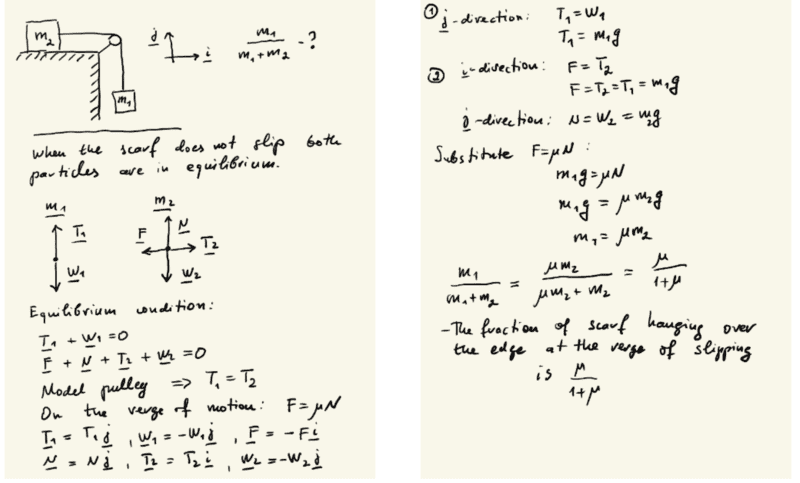 m₂
m₁
j
i
m₁/(m₁+m₂) - ?
When the scarf does not slip both
particles are in equilibrium.
m₁
T₁
W₁
m₂
F
N
T₂
W₂
Equilibrium condition:
T₁ + W₁ = 0
F + N + T₂ + W₂ = 0
Model pulley => T₁ = T₂
On the verge of motion: F = μN
T₁ = T₁ j , W₁ = -W₁ j , F = -F i
N = N j , T₂ = T₂ i , W₂ = -W₂ j
① j - direction: T₁ = W₁
T₁ = m₁g
② i - direction: F = T₂
F = T₂ = T₁ = m₁g
j - direction: N = W₂ = m₂g
Substitute F = μN :
m₁g = μN
m₁g = μ m₂g
m₁ = μm₂
m₁/(m₁+m₂) = μm₂/(μm₂+m₂) = μ/(1+μ)
- The fraction of scarf hanging over
the edge at the verge of slipping
is μ/(1+μ)